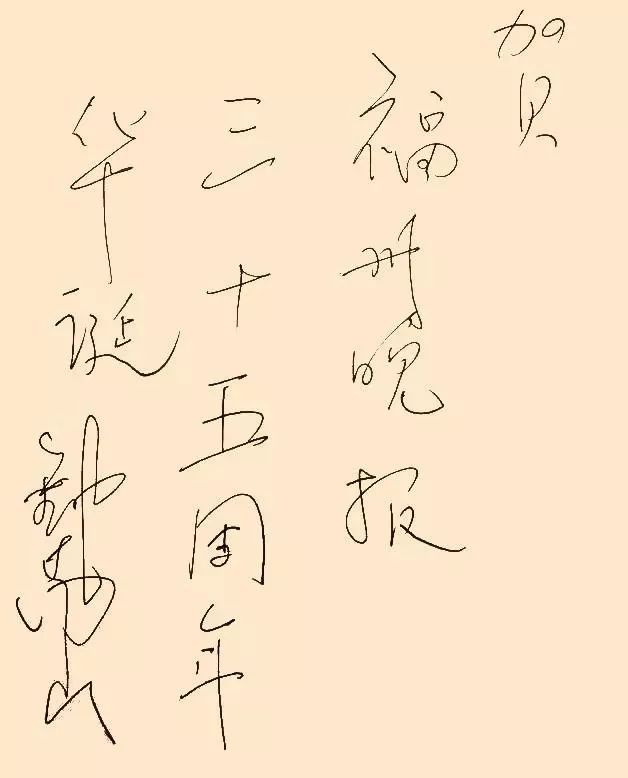 贺
福州晚报
三十五周年
华诞 钟南山